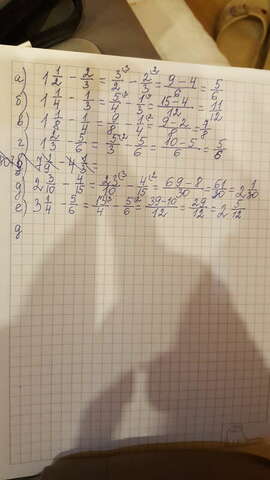 а) 1 1/2 - 2/3 = 3/2 ^3 - 2/3 ^2 = 9-4/6 = 5/6
б) 1 1/4 - 1/3 = 5/4 ^3 - 1/3 ^4 = 15-4/12 = 11/12
в) 1 1/8 - 1/4 = 9/8 - 1/4 ^2 = 9-2/8 = 7/8
г) 1 2/3 - 5/6 = 5/3 ^2 - 5/6 = 10-5/6 = 5/6
д) 2 3/10 - 4/15 = 23/10 ^3 - 4/15 ^2 = 69-8/30 = 61/30 = 2 1/30
е) 3 1/4 - 5/6 = 13/4 ^3 - 5/6 ^2 = 39-10/12 = 29/12 = 2 5/12
д